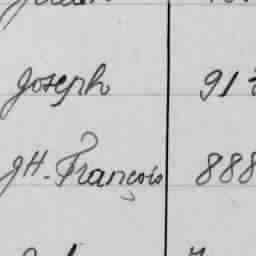 Joseph 91
JH. François 888